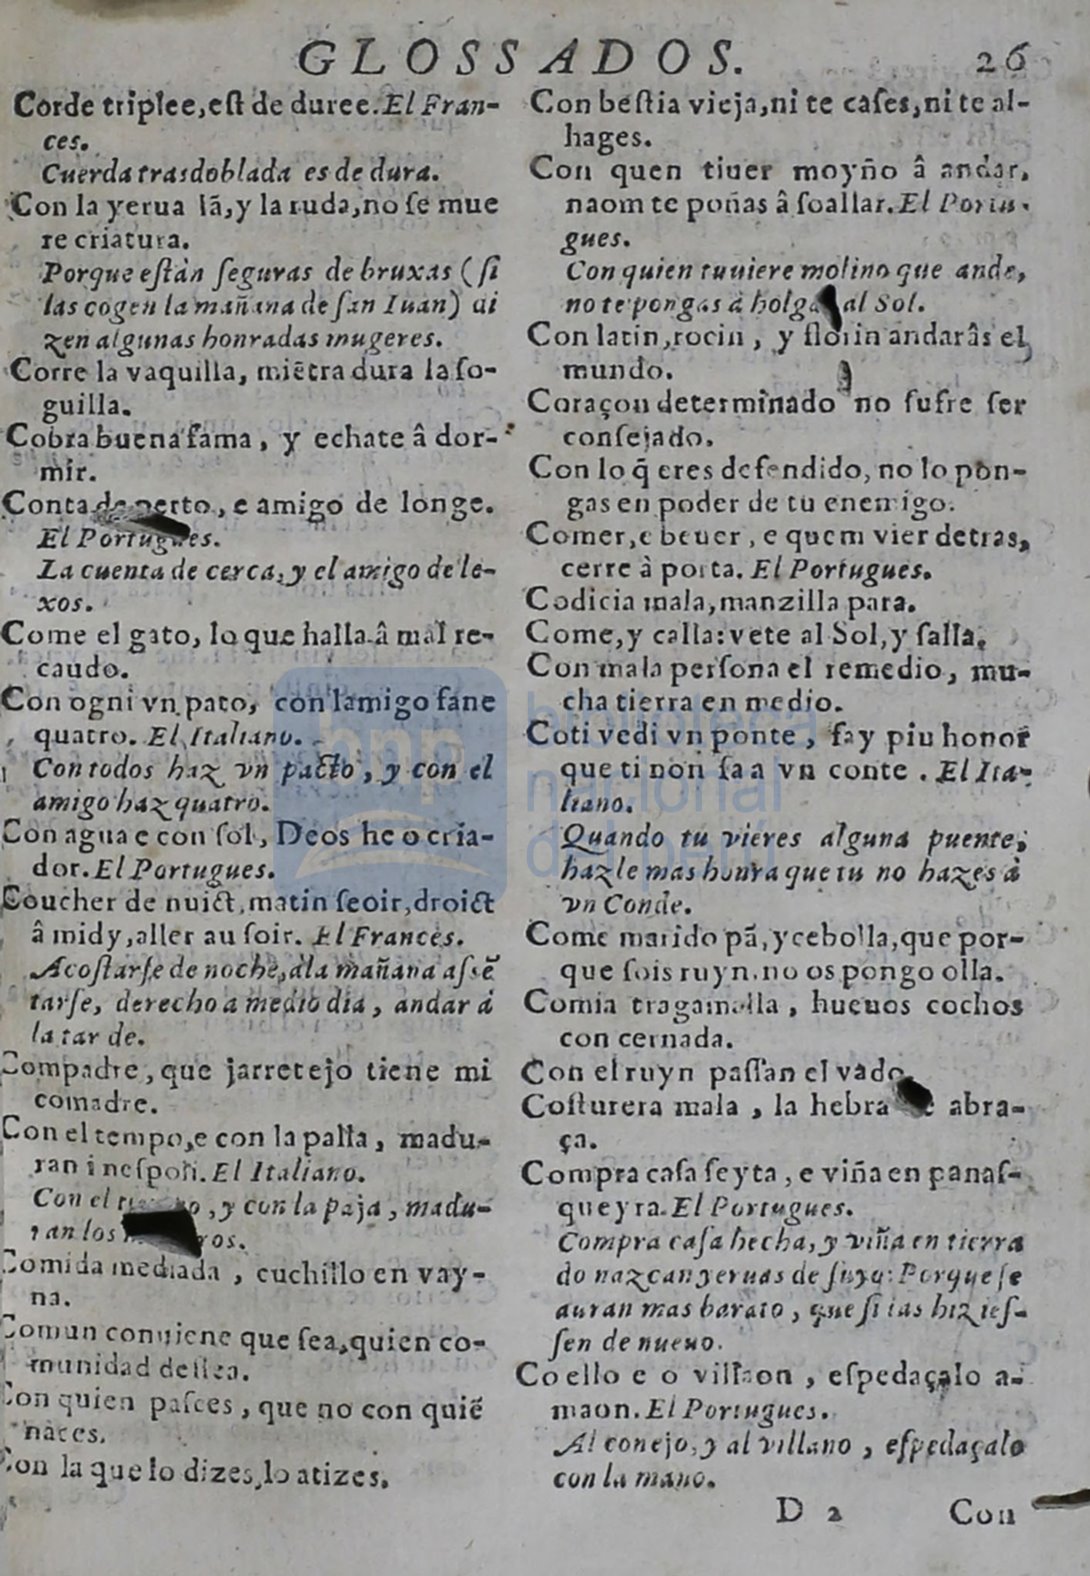 GLOSSADOS. 26
Corde triplee, eſt de duree. El Fran-
ces.
Cuerda trasdoblada es de dura.
Con la yerua ſã, y la ruda, no ſe mue
re criatura.
Porque eſtàn ſeguras de bruxas (ſi
las cogen la mañana de ſan Iuan) di
zen algunas honradas mugeres.
Corre la vaquilla, miẽtra dura la ſo-
guilla.
Cobra buena fama, y echate â dor-
mir.
Conta de perto, e amigo de longe.
El Portugues.
La cuenta de cerca, y el amigo de le-
xos.
Come el gato, lo que halla â mal re-
caudo.
Con ogni vn pato, con l'amigo fane
quatro. El Italiano.
Con todos haz vn pacto, y con el
amigo haz quatro.
Con agua e con ſol, Deos he o cria-
dor. El Portugues.
Coucher de nuict, matin ſeoir, droict
â midy, aller au ſoir. El Frances.
Acoſtarſe de noche, a la mañana aſsẽ
tarſe, derecho a medio dia, andar à
la tar de.
Compadre, que jarretejo tiene mi
comadre.
Con el tempo, e con la palla, madu-
ran i neſpoli. El Italiano.
Con el , y con la paja, madu-
ran los
Comida mediada, cuchillo en vay-
na.
Comun conuiene que ſea, quien co-
munidad deſſea.
Con quien paſces, que no con quiẽ
naces.
Con la que lo dizes, lo atizes.
Con beſtia vieja, ni te caſes, ni te al-
hages.
Con quen tiuer moyño â andar,
naom te poñas â ſoallar. El Portu-
gues.
Con quien tuuiere molino que ande,
no te pongas à holgar al Sol.
Con latin, rocin, y florin andarâs el
mundo.
Coraçon determinado no ſufre ſer
conſejado.
Con lo q̃ eres defendido, no lo pon-
gas en poder de tu enemigo.
Comer, e beuer, e quem vier detras,
cerre à porta. El Portugues.
Codicia mala, manzilla para.
Come, y calla: vete al Sol, y ſalla.
Con mala perſona el remedio, mu-
cha tierra en medio.
Coti vedi vn ponte, fay piu honor
que ti non fa a vn conte. El Ita-
liano.
Quando tu vieres alguna puente,
hazle mas honra que tu no hazes à
vn Conde.
Come marido pã, y cebolla, que por-
que ſois ruyn, no os pongo olla.
Comia tragamalla, hueuos cochos
con cernada.
Con el ruyn paſſan el vado.
Coſturera mala, la hebra de abra-
ça.
Compra caſa feyta, e viña en panaſ-
queyra. El Portugues.
Compra caſa hecha, y viña en tierra
do nazcan yeruas de ſuyo: Porque ſe
auran mas barato, que ſi las hizieſ-
ſen de nueuo.
Coello e o villaon, eſpedaçalo a-
maon. El Portugues.
Al conejo, y al villano, eſpedaçalo
con la mano.
D 2 Con
bnp biblioteca
nacional
del perú